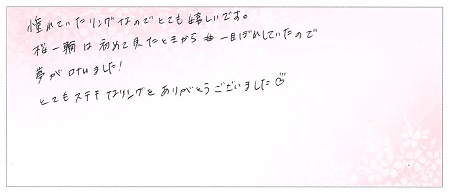 憧れていたリングなのでとても嬉しいです。
桜一輪は初めて見たときから一目ぼれしていたので
夢が叶いました!
とてもステキなリングをありがとうございました